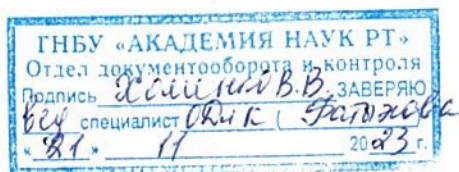 ГНБУ «АКАДЕМИЯ НАУК РТ»
Отдел документооборота и контроля
Подпись Хоменко В.В. ЗАВЕРЯЮ
Вед специалист ОДиК (Фатыхова
«21» 11 2023 г.